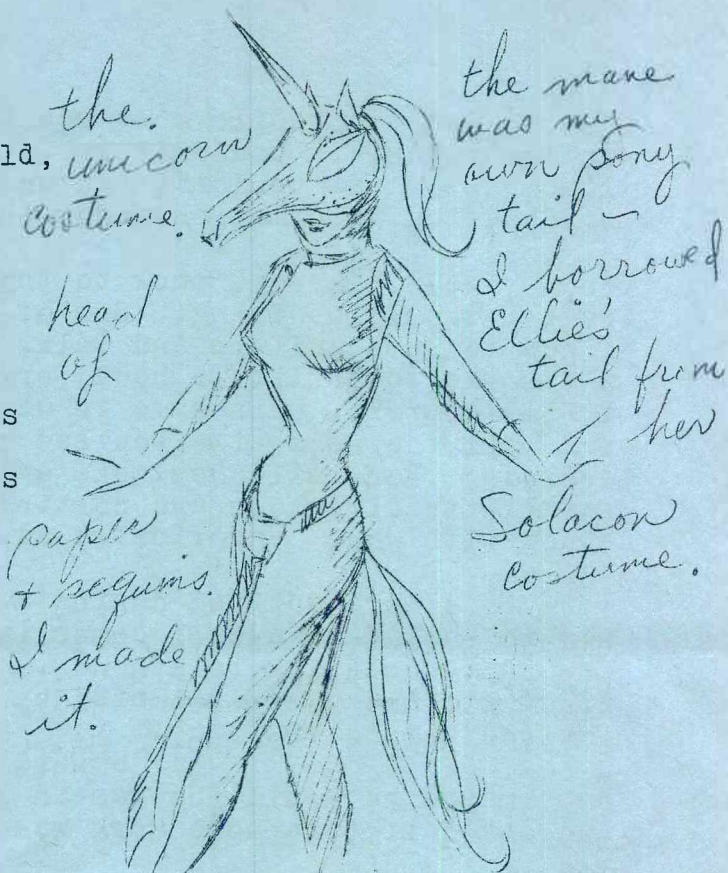 the
unicorn
costume.
head
of
paper
+ sequins.
I made
it.
the mane
was my
own pony
tail –
I borrowed
Ellie's
tail from
her
Solacon
costume.
ld,
s
s